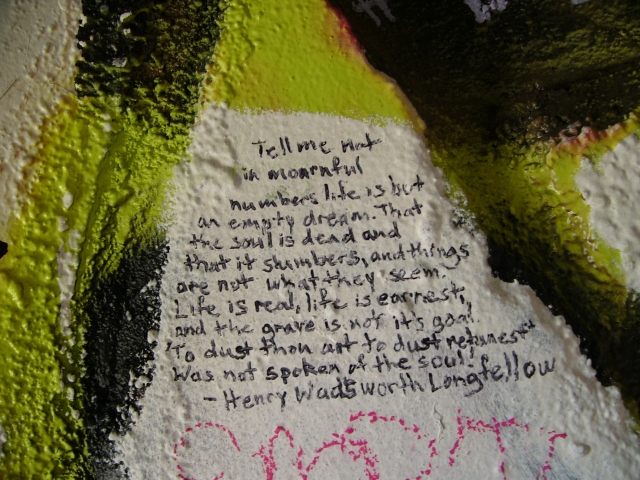 Tell me not
in mournful
numbers life is but
an empty dream. That
the soul is dead and
that it slumbers, and things
are not what they seem.
Life is real, life is earnest,
and the grave is not it's goal.
"To dust thou art to dust retunest"
Was not spoken of the soul!
- Henry Wadsworth Longfellow